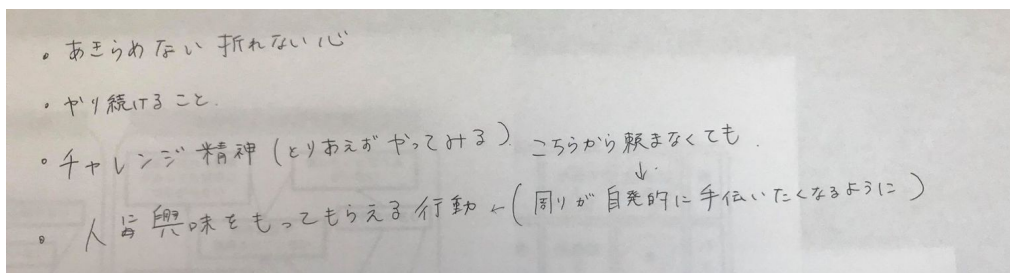 ・あきらめない 折れない心
・やり続けること.
・チャレンジ精神(とりあえず やってみる). こちらから頼まなくても.
↓
・人に興味をもってもらえる行動 ←(周りが自発的に手伝いたくなるように)